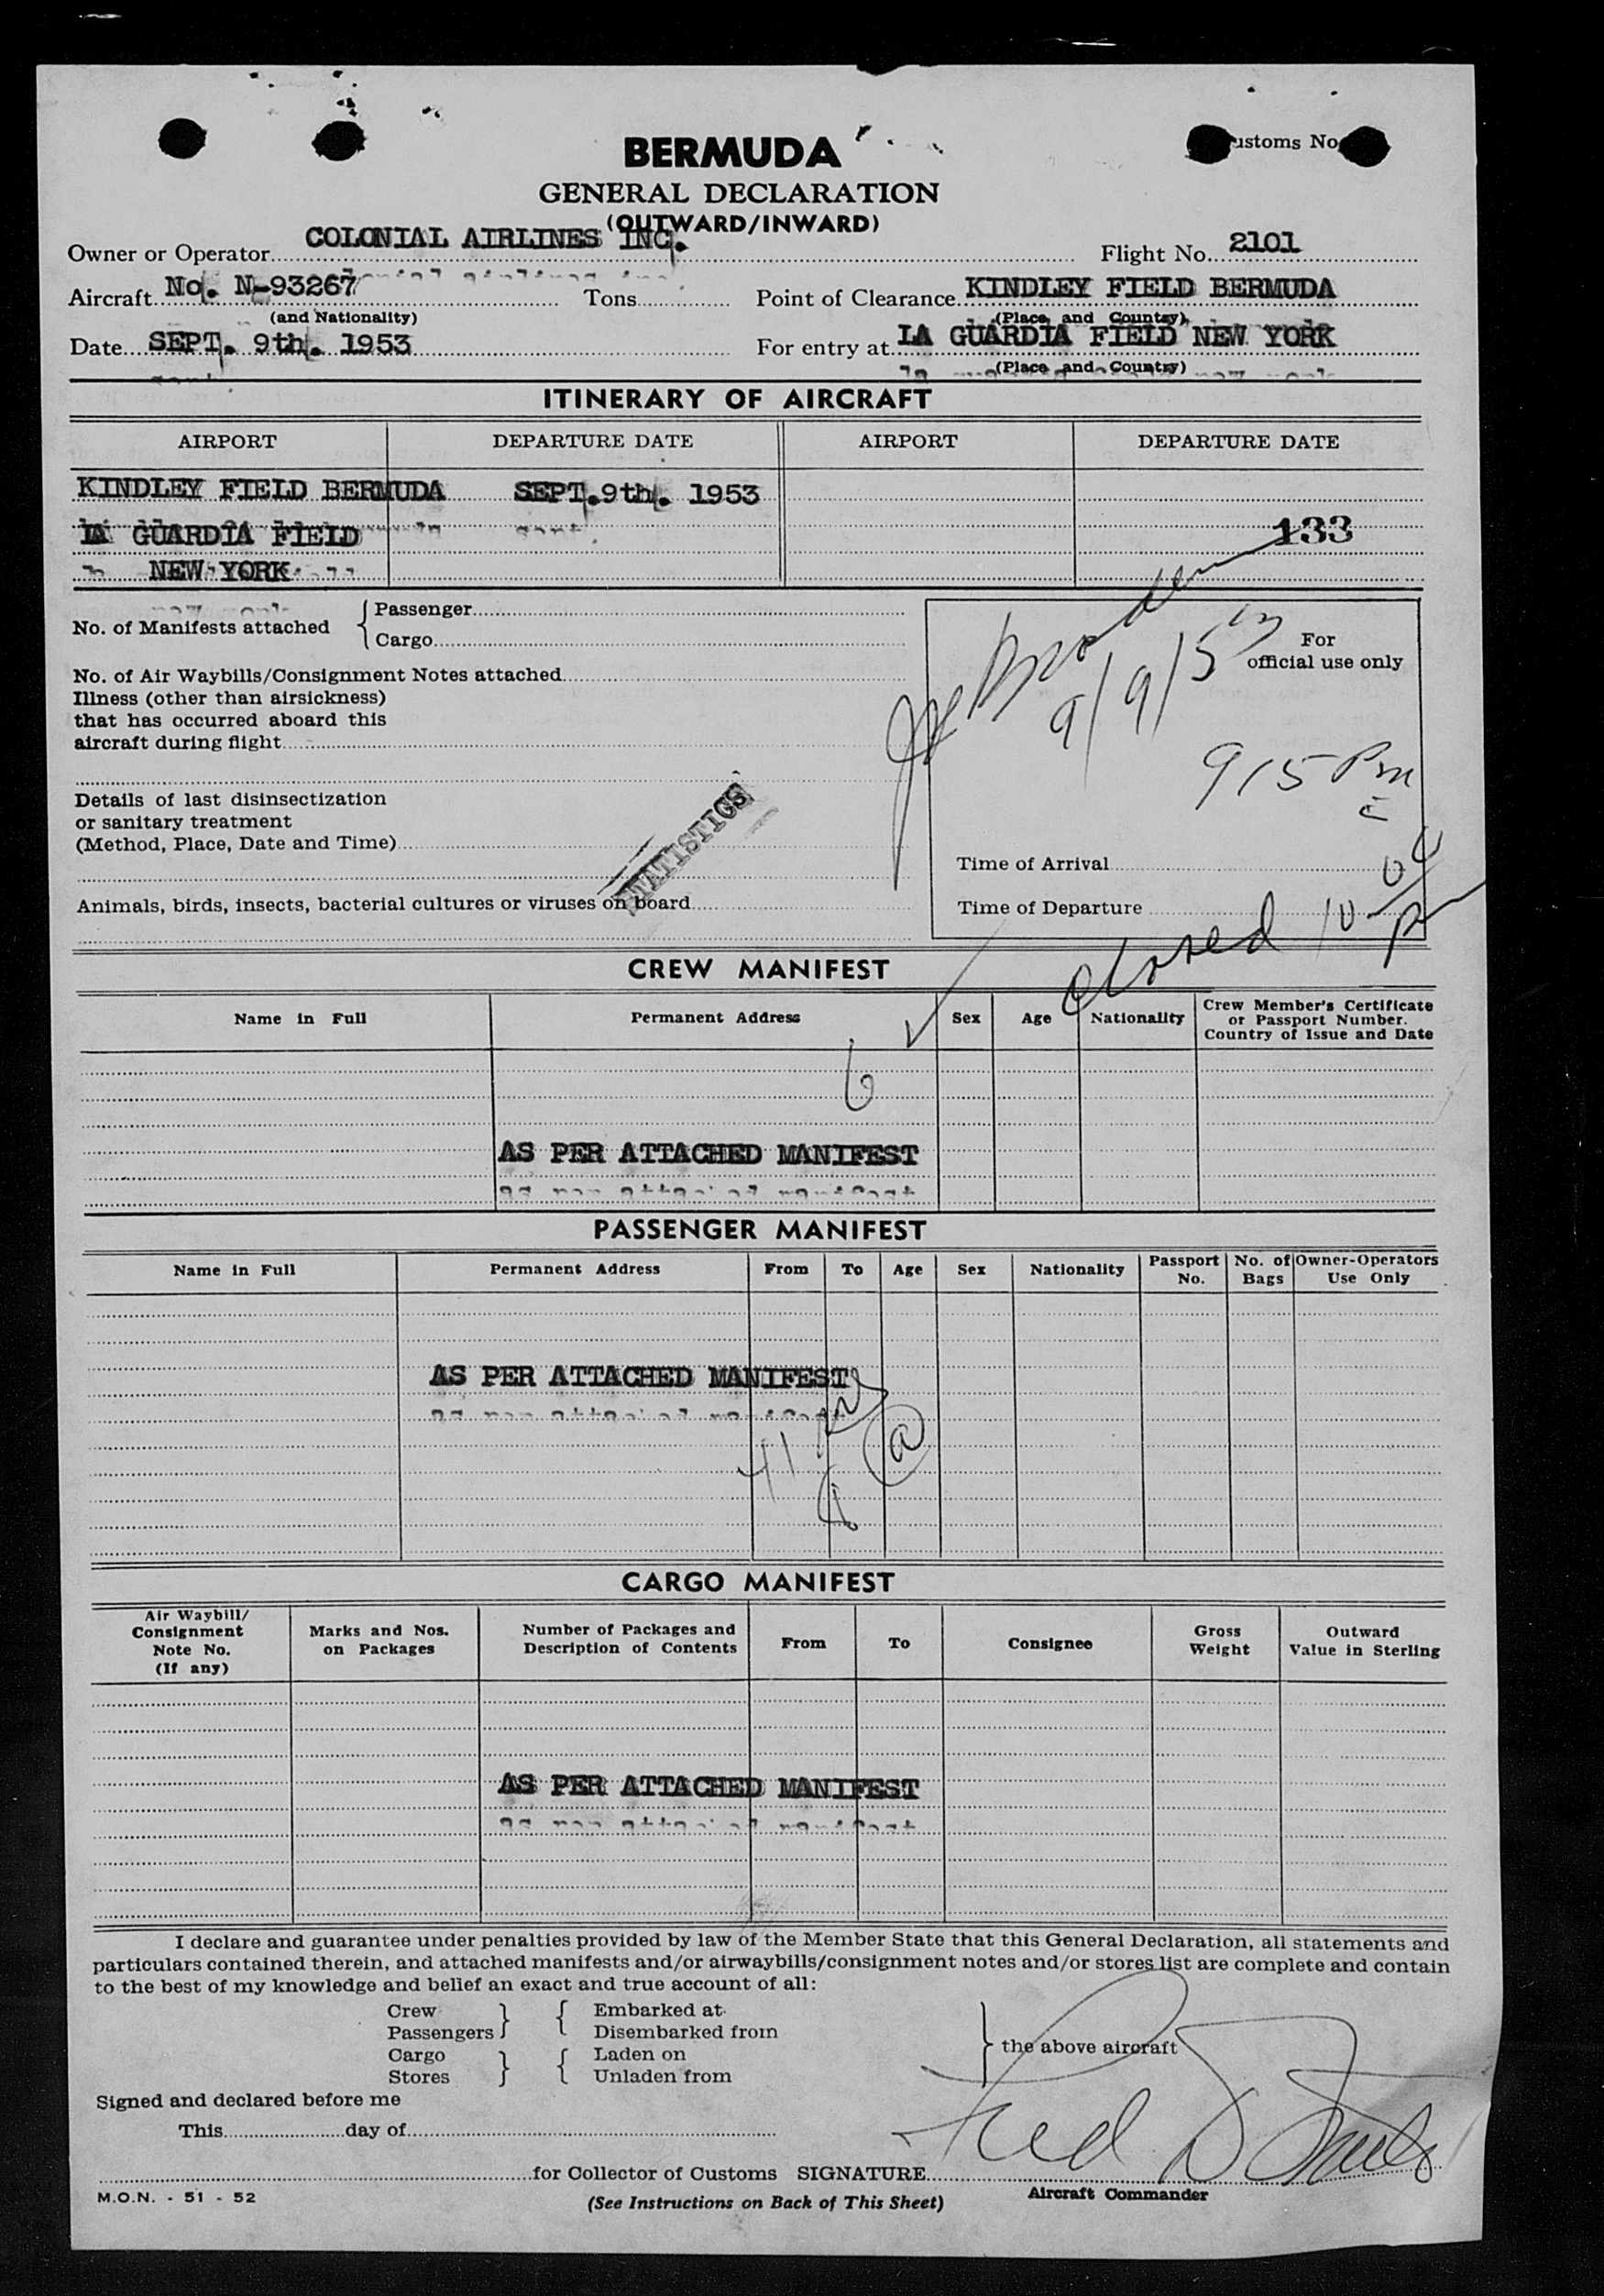 BERMUDA
ustoms No
GENERAL DECLARATION
(OUTWARD/INWARD)
Owner or Operator COLONIAL AIRLINES INC. Flight No. 2101
Aircraft No. N-93267 Tons Point of Clearance KINDLEY FIELD BERMUDA
(and Nationality) (Place and Country)
Date SEPT. 9th. 1953 For entry at LA GUARDIA FIELD NEW YORK
(Place and Country)
ITINERARY OF AIRCRAFT
AIRPORT DEPARTURE DATE AIRPORT DEPARTURE DATE
KINDLEY FIELD BERMUDA SEPT.9th. 1953
LA GUARDIA FIELD 133
NEW YORK
No. of Manifests attached { Passenger
Cargo
For
official use only
9/9/53
No. of Air Waybills/Consignment Notes attached
Illness (other than airsickness)
that has occurred aboard this
aircraft during flight
915 Pm
Details of last disinsectization
or sanitary treatment
(Method, Place, Date and Time)
STATISTICS
Time of Arrival
Animals, birds, insects, bacterial cultures or viruses on board
Time of Departure
closed 10
CREW MANIFEST
Name in Full Permanent Address Sex Age Nationality Crew Member's Certificate
or Passport Number.
Country of Issue and Date
6
AS PER ATTACHED MANIFEST
PASSENGER MANIFEST
Name in Full Permanent Address From To Age Sex Nationality Passport No. No. of Bags Owner-Operators Use Only
AS PER ATTACHED MANIFEST
41
CARGO MANIFEST
Air Waybill/
Consignment
Note No.
(If any)
Marks and Nos.
on Packages
Number of Packages and
Description of Contents
From
To
Consignee
Gross
Weight
Outward
Value in Sterling
AS PER ATTACHED MANIFEST
I declare and guarantee under penalties provided by law of the Member State that this General Declaration, all statements and
particulars contained therein, and attached manifests and/or airwaybills/consignment notes and/or stores list are complete and contain
to the best of my knowledge and belief an exact and true account of all:
Crew } { Embarked at
Passengers Disembarked from } the above aircraft
Cargo } { Laden on
Stores Unladen from
Signed and declared before me
This day of
for Collector of Customs SIGNATURE
Aircraft Commander
M.O.N. - 51 - 52
(See Instructions on Back of This Sheet)